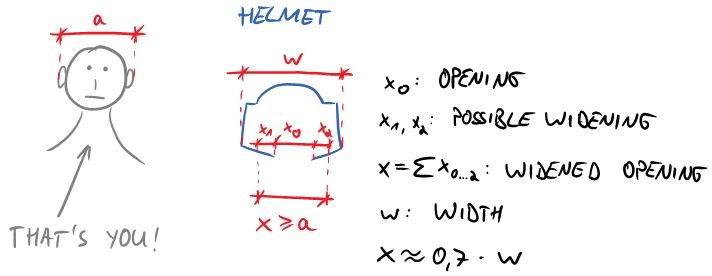 a
THAT'S YOU!
HELMET
w
x₁ x₀ x₂
x ≥ a
x₀: OPENING
x₁, x₂: POSSIBLE WIDENING
x = ∑ x₀...₂: WIDENED OPENING
w: WIDTH
x ≈ 0,7 · w